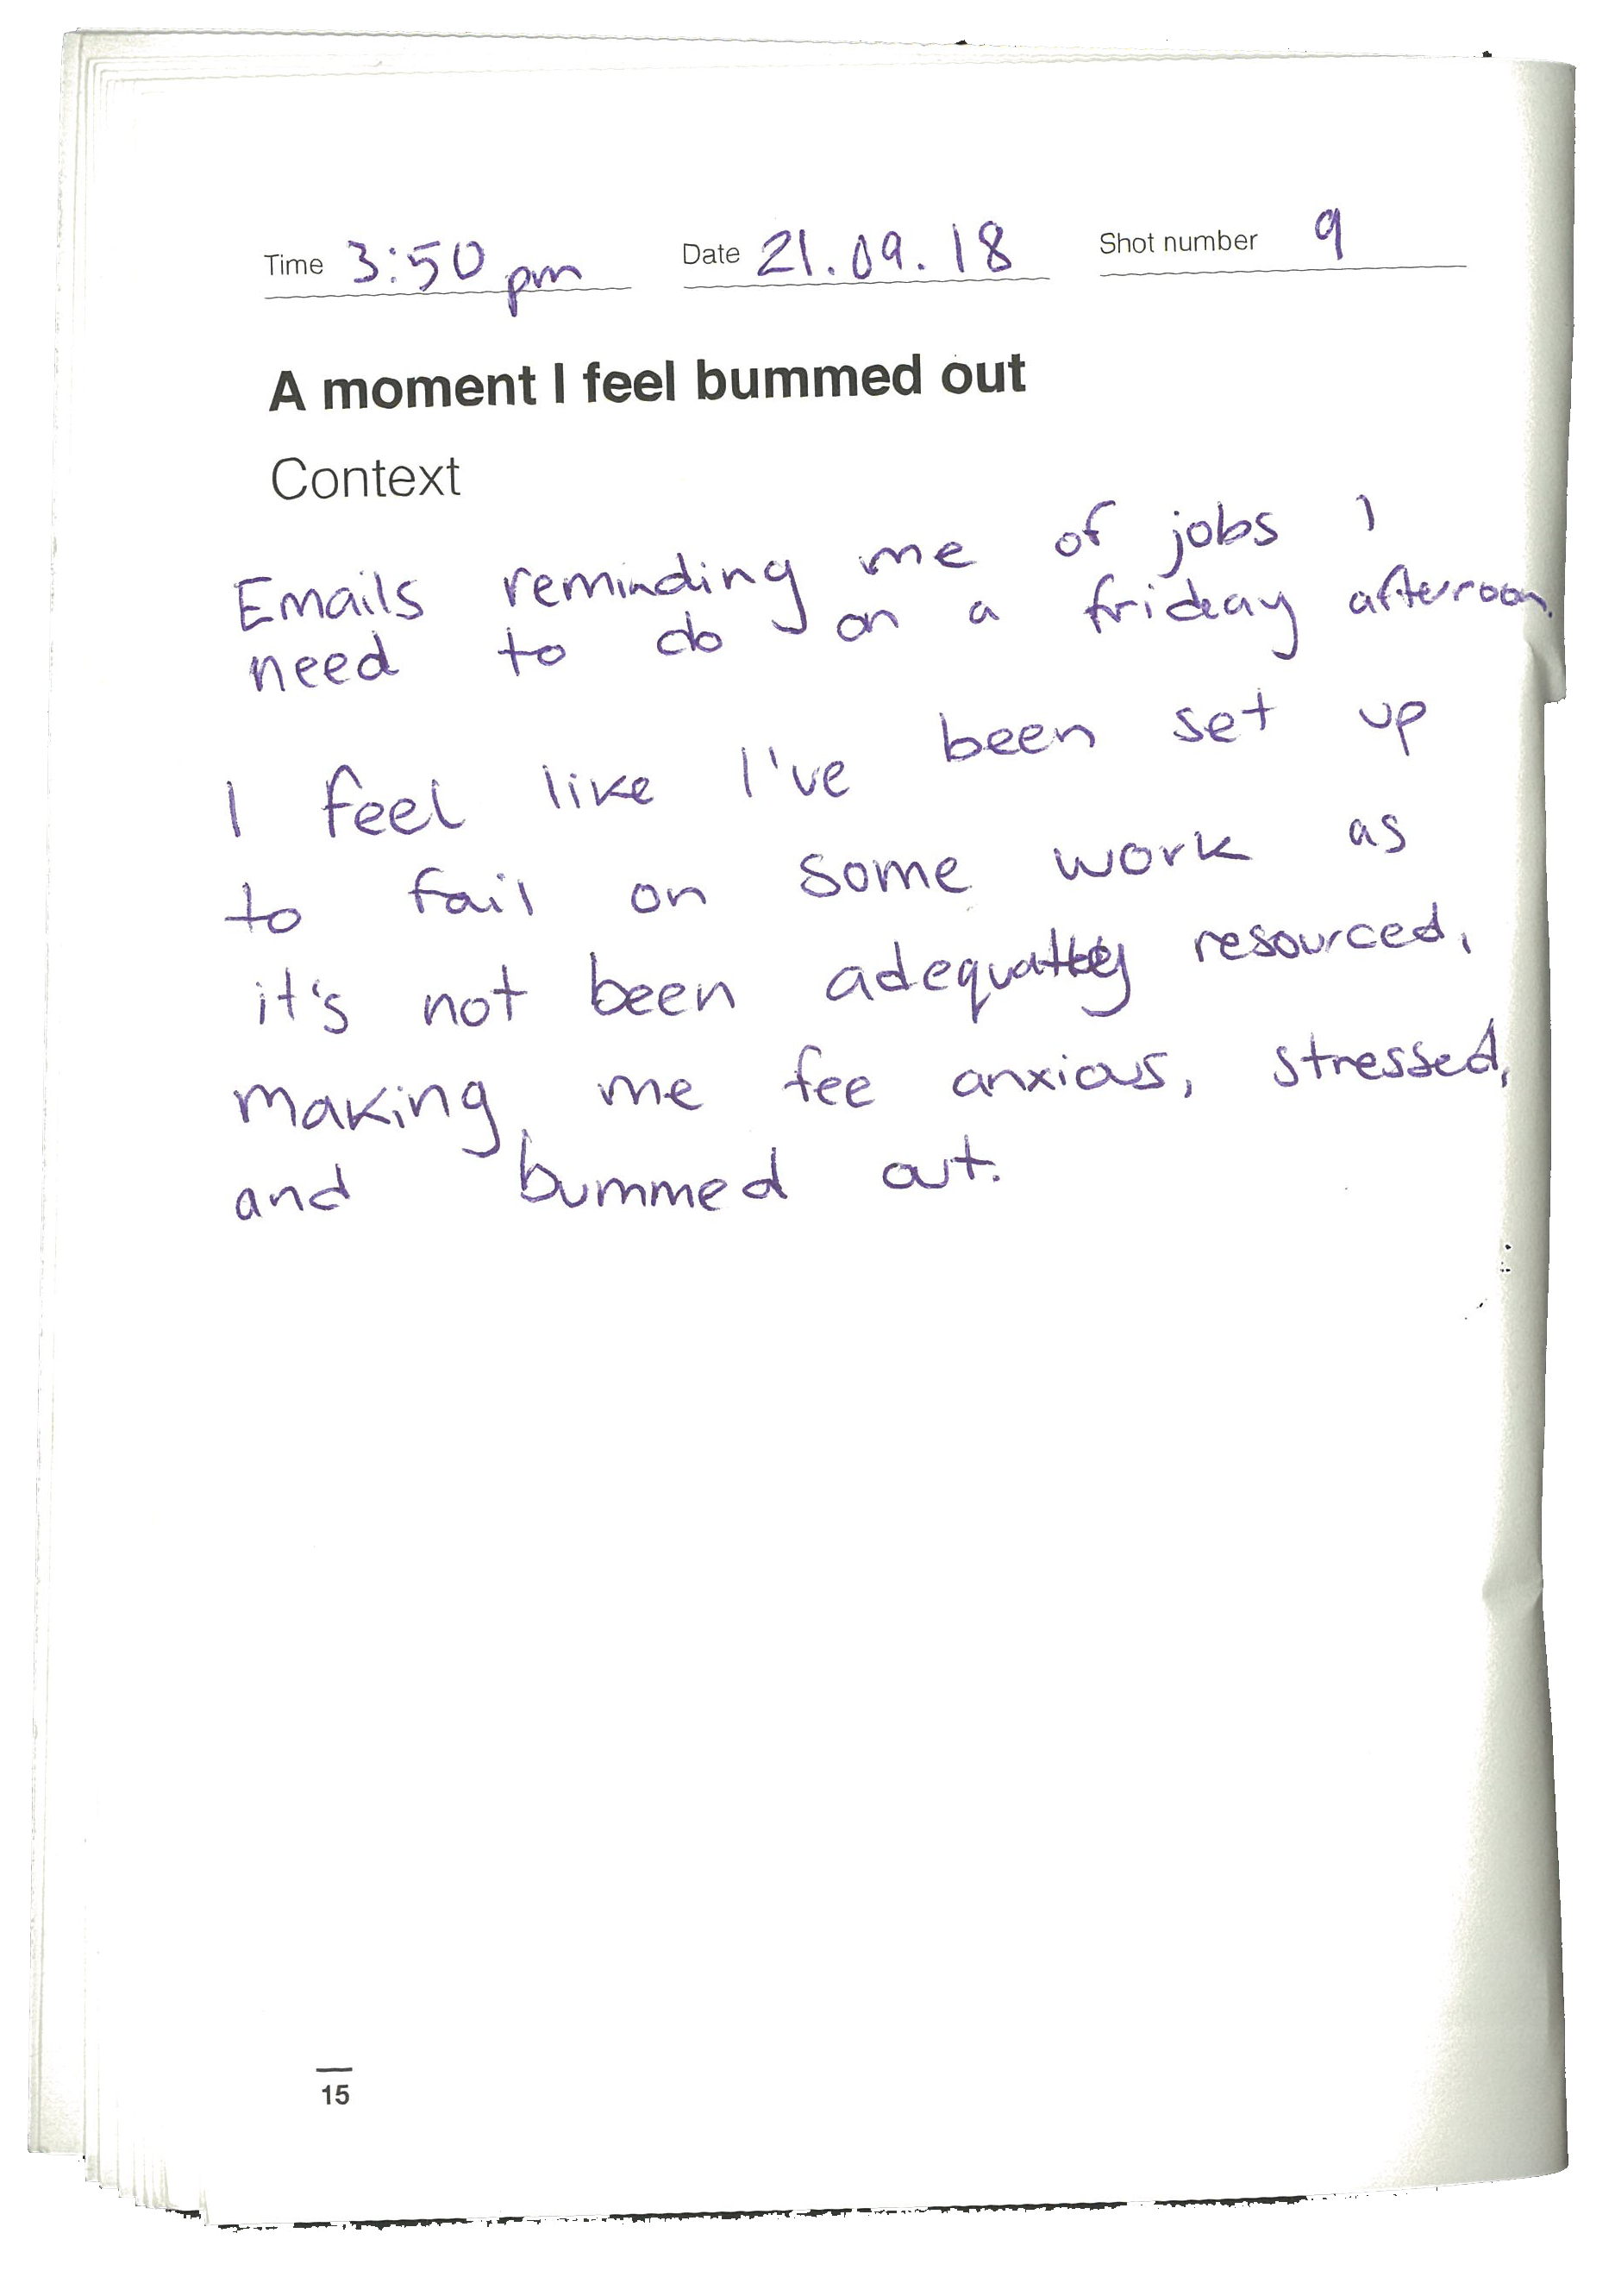 Time 3:50 pm Date 21.09.18 Shot number 9
A moment I feel bummed out
Context
Emails reminding me of jobs I
need to do on a friday afternoon.
I feel like I've been set up
to fail on some work as
it's not been adequately resourced,
making me fee anxious, stressed,
and bummed out.
15